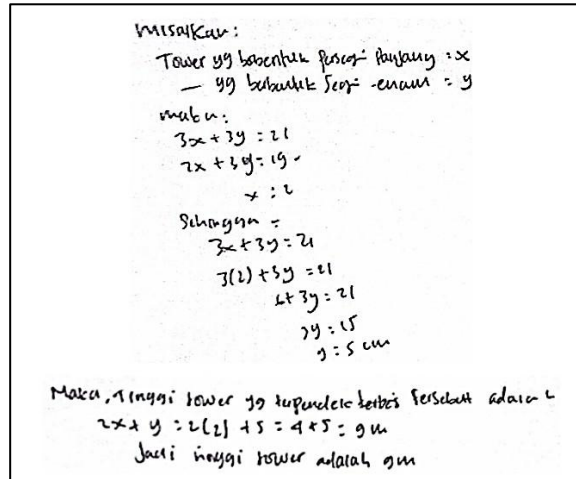 misalkan:
Tower yg berbentuk persegi panjang = x
— yg berbentuk segi-enam = y
maka:
3x + 3y = 21
2x + 3y = 19 -
x = 2
Sehingga =
3x + 3y = 21
3(2) + 3y = 21
6 + 3y = 21
3y = 15
y = 5 cm
Maka, tinggi tower yg terpendek tersebut adalah
2x + y = 2(2) + 5 = 4 + 5 = 9 m
Jadi tinggi tower adalah 9m